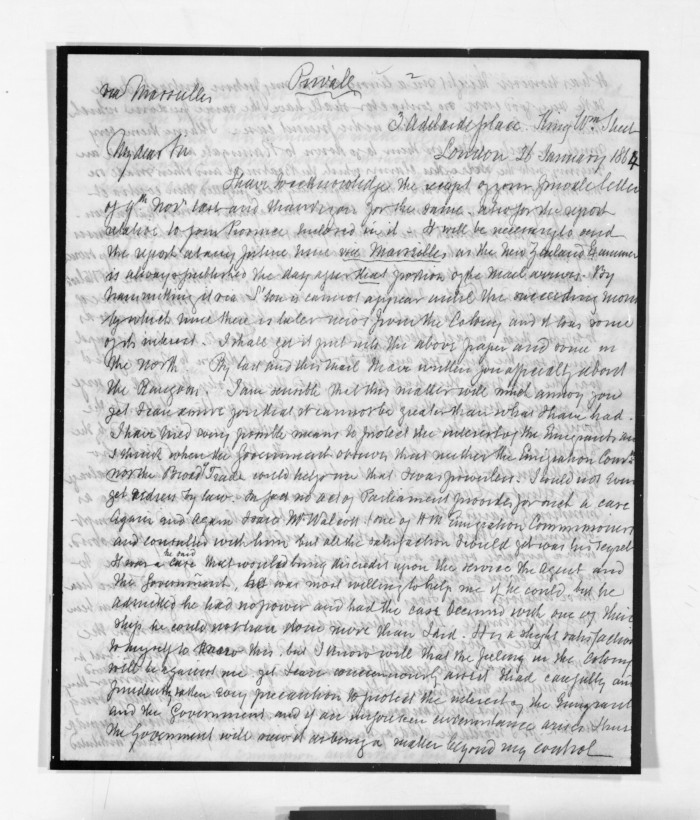 Private
via Marseilles
3 Adelaide place. King Wm Street
London 26 January 1864
My dear Sir
I have to acknowledge the receipt of your private letter
of 9th Novr last and thank you for the same. also for the report
relative to your Province enclosed in it. It will be necessary to send
the report at any future time via Marseilles as the New Zealand Examiner
is always published the day after that portion of the Mail arrives. By
transmitting it via S'ton it cannot appear until the succeeding month
by which time there is later news from the Colony and it loses some
of its interest. I shall get it put into the above paper and some in
the North. By last and this Mail I have written you specially about
the Rangoon. I am sensible that this matter will much annoy you
yet I can assure you that it cannot be greater than what I have had.
I have tried every possible means to protect the interest of the Emigrants and
I think when the Government observe that neither the Emigration Comrs
nor the Board of Trade could help me that I was powerless. I could not even
get redress by law. In fact no act of Parliament provides for such a case
Again and Again I saw Mr Walcott one of H M Emigration Commissioners
and consulted with him but all the satisfaction I could get was his regret
It was a case he said that would bring discredit upon the service the Agent and
the Government, He was most willing to help me if he could, but he
admitted he had no power and had the case occurred with one of their
ships he could not have done more than I did. It is a slight satisfaction
to myself to know this, but I know well that the feeling in the Colony
will be against me yet I can conscientiously assert I had carefully and
prudently taken every precaution to protect the interest of the Emigrants
and the Government and if an unforeseen circumstance arises I trust
the Government will view it as being a matter beyond my control